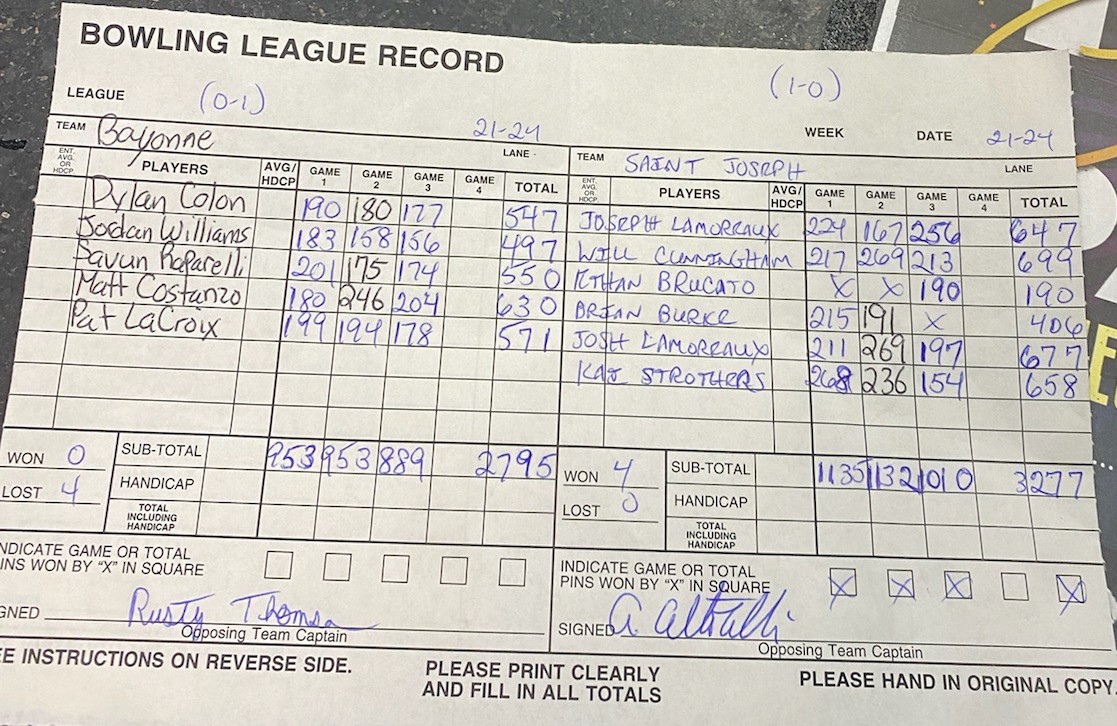 BOWLING LEAGUE RECORD
LEAGUE (0-1) (1-0)
WEEK DATE
TEAM Bayonne 21-24 LANE
TEAM SAINT JOSEPH 21-24 LANE
ENT. AVG. OR HDCP. PLAYERS AVG/HDCP GAME 1 GAME 2 GAME 3 GAME 4 TOTAL
Dylan Colon 190 180 177 547
Jordan Williams 183 158 156 497
Savun Raparelli 201 175 174 550
Matt Costanzo 180 246 204 630
Pat LaCroix 199 194 178 571
WON 0 SUB-TOTAL 953 953 889 2795
LOST 4 HANDICAP
TOTAL INCLUDING HANDICAP
NDICATE GAME OR TOTAL
INS WON BY "X" IN SQUARE
GNED Rusty Thomsa
Opposing Team Captain
ENT. AVG. OR HDCP. PLAYERS AVG/HDCP GAME 1 GAME 2 GAME 3 GAME 4 TOTAL
JOSEPH LAMOREAUX 224 167 256 647
WILL CUNNINGHAM 217 269 213 699
ETHAN BRUCATO X X 190 190
BRIAN BURKE 215 191 X 406
JOSH LAMOREAUX 211 269 197 677
KAI STROTHERS 268 236 154 658
WON 4 SUB-TOTAL 1135 1132 1010 3277
LOST 0 HANDICAP
TOTAL INCLUDING HANDICAP
INDICATE GAME OR TOTAL
PINS WON BY "X" IN SQUARE X X X X
SIGNED
Opposing Team Captain
EE INSTRUCTIONS ON REVERSE SIDE.
PLEASE PRINT CLEARLY
AND FILL IN ALL TOTALS
PLEASE HAND IN ORIGINAL COPY.